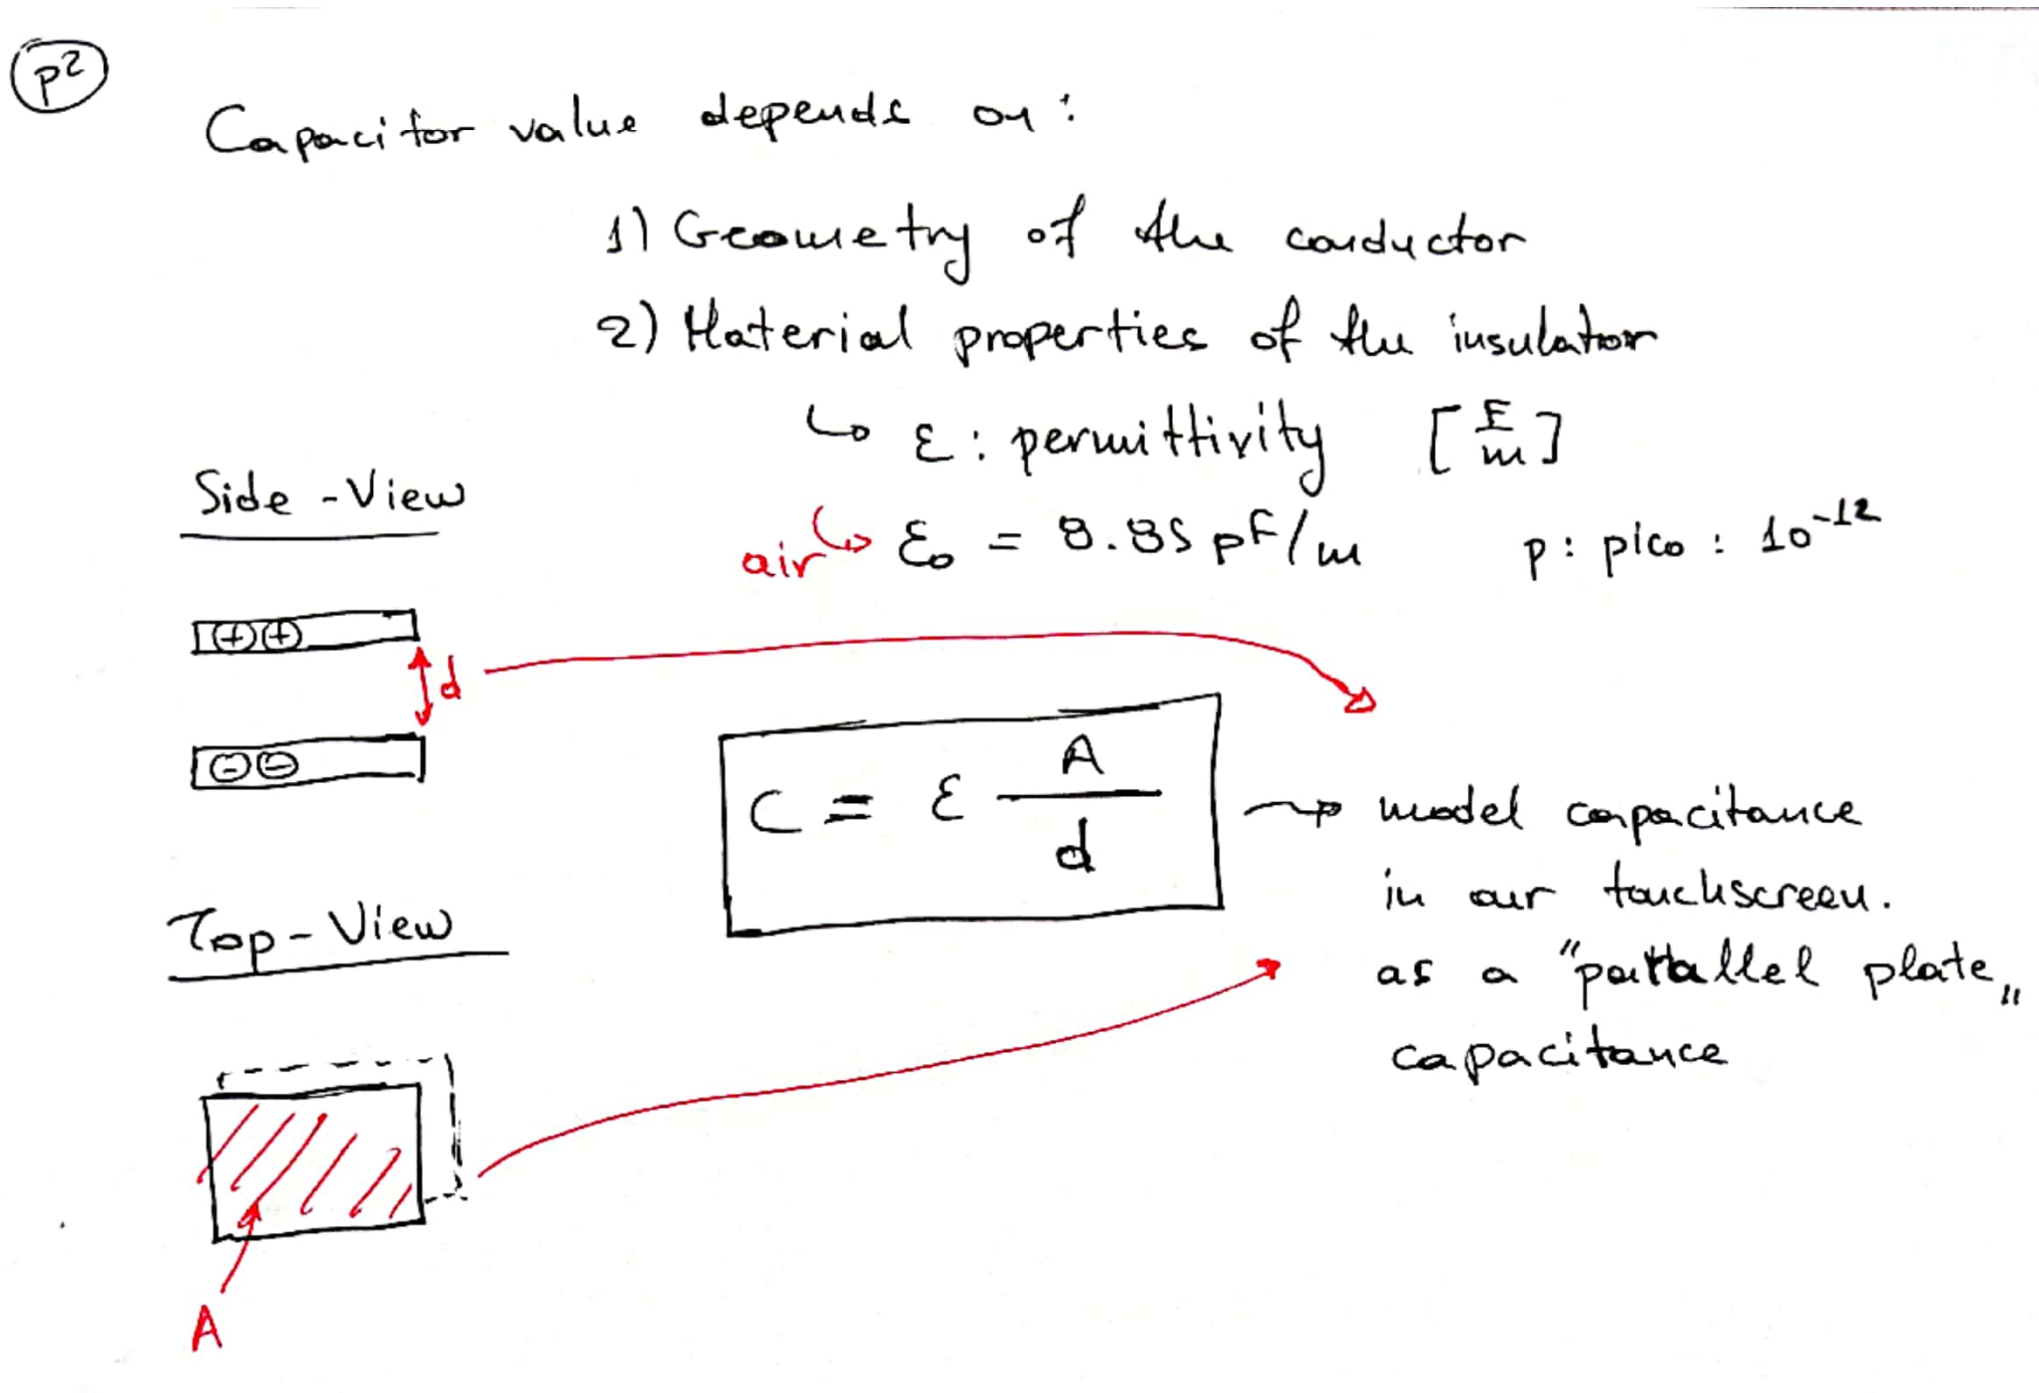 p2
Capacitor value depends on:
1) Geometry of the conductor
2) Material properties of the insulator
↳ ε: permittivity [F/m]
Side-View
air ↳ ε₀ = 8.85 pF/m p: pico: 10⁻¹²
++
d
--
C = ε A/d
→ model capacitance
in our touchscreen.
Top-View
as a "parallel plate"
capacitance
A